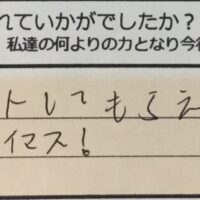 れていかがでしたか?
私達の何よりの力となり今後
トしてもらえ
イマス!